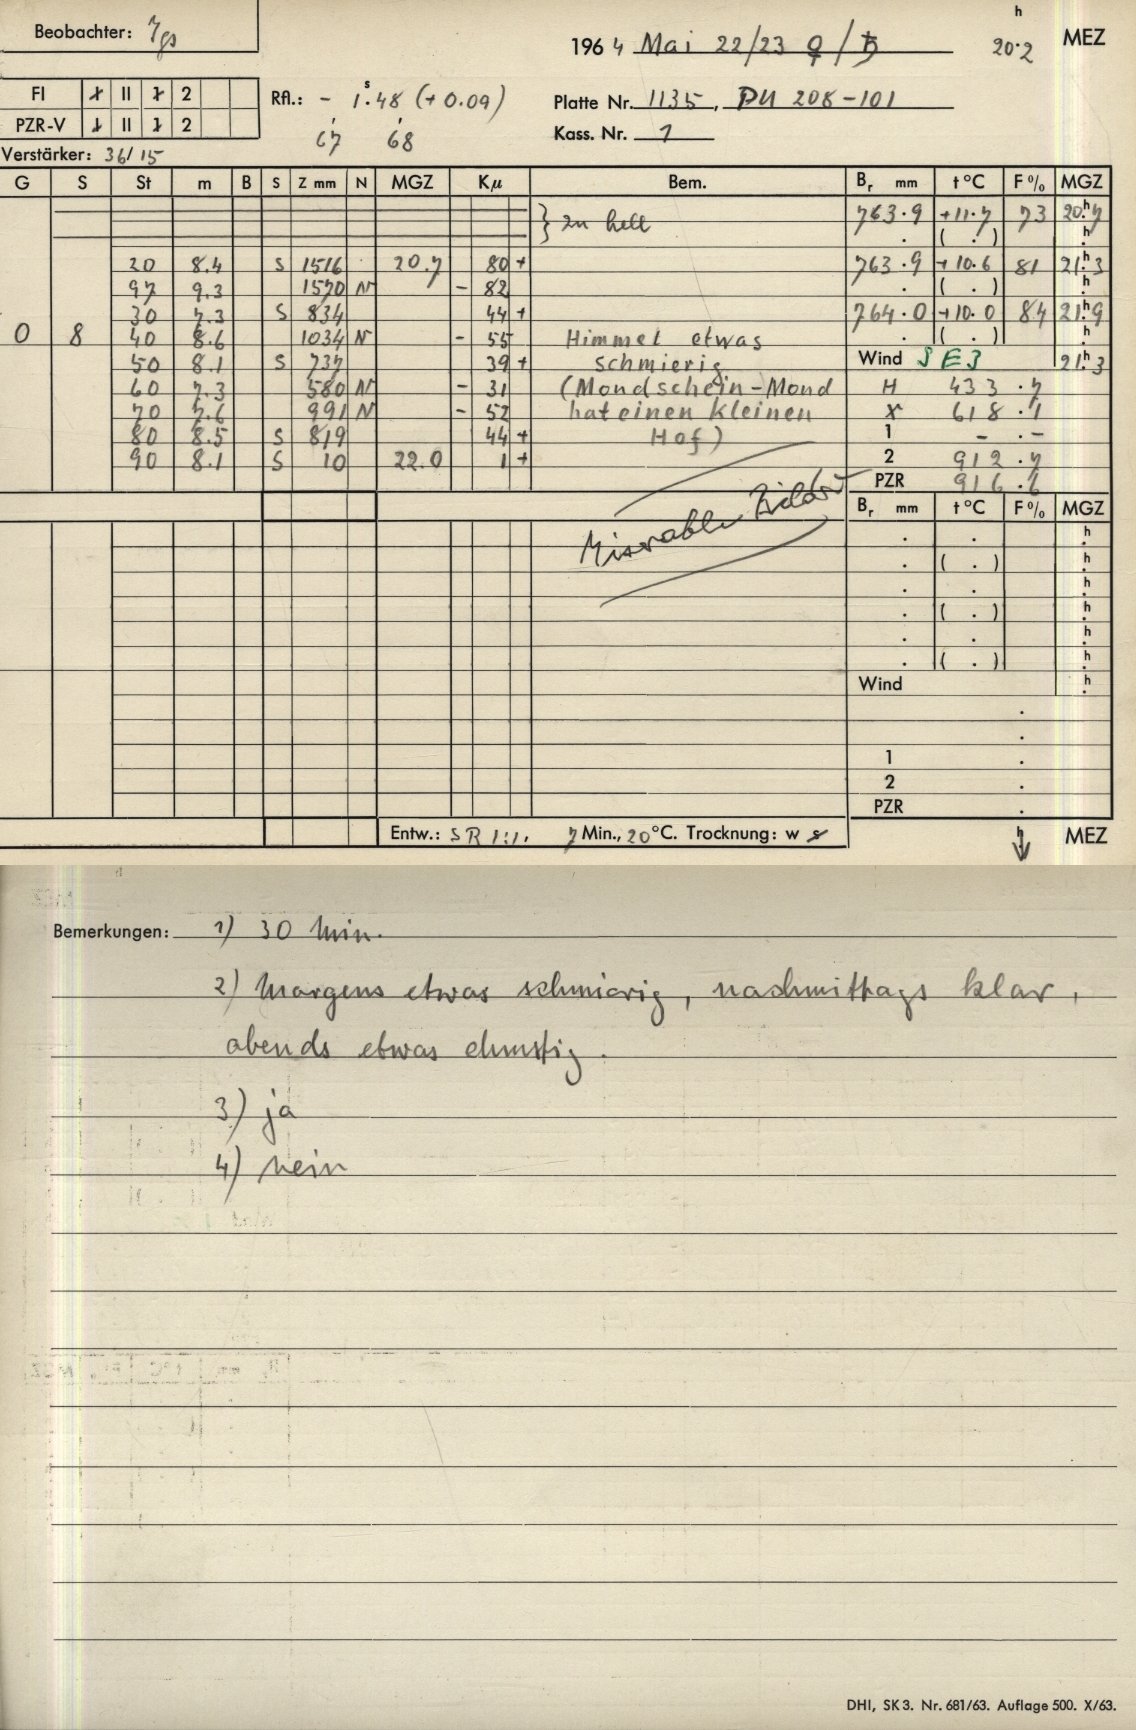 Beobachter: Jgs
1964 Mai 22/23 ♀/♄ 20ʰ.2 MEZ
FI I II 1 2
Rfl.: - 1ˢ.48 (+0.09)
Platte Nr. 1135, DU 208-101
PZR-V I II 1 2
67 68
Kass. Nr. 1
Verstärker: 36/15
G S St m B S Z mm N MGZ Kμ Bem. Br mm t °C F % MGZ
} zu hell 763.9 +11.7 73 20ʰ.7
. ( . ) ʰ.
20 8.4 S 1516 20.7 80 + 763.9 +10.6 81 21ʰ.3
97 9.3 1570 N - 82 . ( . ) ʰ.
30 7.3 S 834 44 + 764.0 +10.0 84 21ʰ.9
0 8 40 8.6 1034 N - 55 Himmel etwas . ( . ) ʰ.
50 8.1 S 737 39 + schmierig Wind SE3 21ʰ.3
60 7.3 580 N - 31 (Mondschein-Mond H 433.7
70 7.6 991 N - 52 hat einen kleinen X 618.1
80 8.5 S 819 44 + Hof) 1 - . -
90 8.1 S 10 22.0 1 + 2 912.7
PZR 916.6
Miserable Bilder
Br mm t °C F % MGZ
. . ʰ.
. ( . ) ʰ.
. . ʰ.
. ( . ) ʰ.
. . ʰ.
. ( . ) ʰ.
Wind ʰ.
.
.
1 .
2 .
PZR .
Entw.: SR 1:1. 7 Min., 20 °C. Trocknung: w s
ʰ MEZ
Bemerkungen: 1) 30 Min.
2) Morgens etwas schmierig, nachmittags klar,
abends etwas dunstig.
3) ja
4) nein
DHI, SK 3. Nr. 681/63. Auflage 500. X/63.